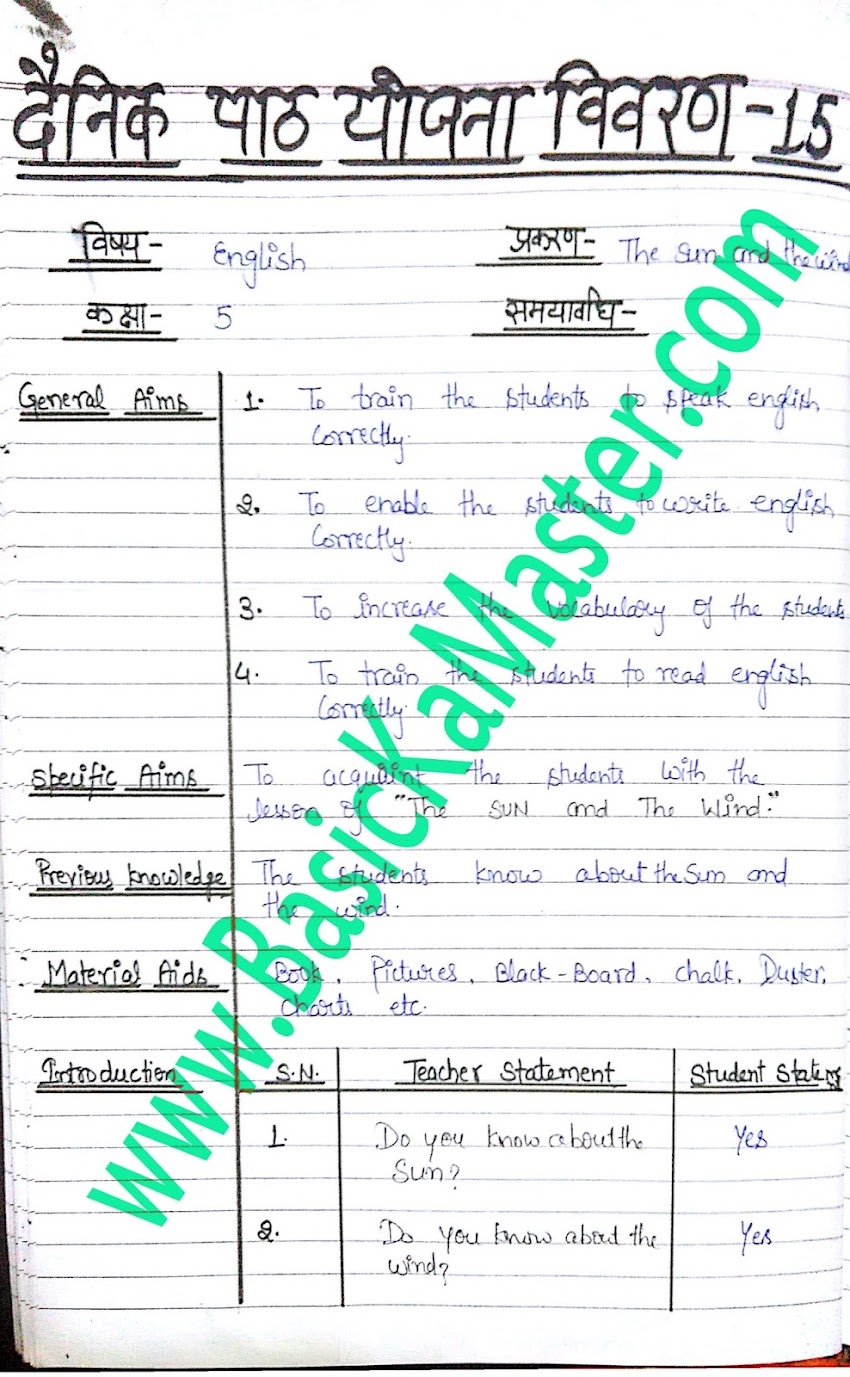 दैनिक पाठ योजना विवरण-15
विषय- English प्रकरण- The Sun and the wind
कक्षा- 5 समयावधि-
General Aims 1. To train the students to speak english
Correctly.
2. To enable the students to write english
Correctly.
3. To increase the vocabulary of the students
4. To train the students to read english
Correctly.
Specific Aims To acquaint the students with the
lesson of "The SUN and The Wind."
Previous knowledge The students know about the Sun and
the wind.
Material Aids Book, Pictures, Black-Board, chalk, Duster,
Charts etc.
Introduction S.N. Teacher Statement Student
1. Do you know about the Yes
Sun?
2. Do you know about the Yes
wind?
www.BasicKaMaster.com